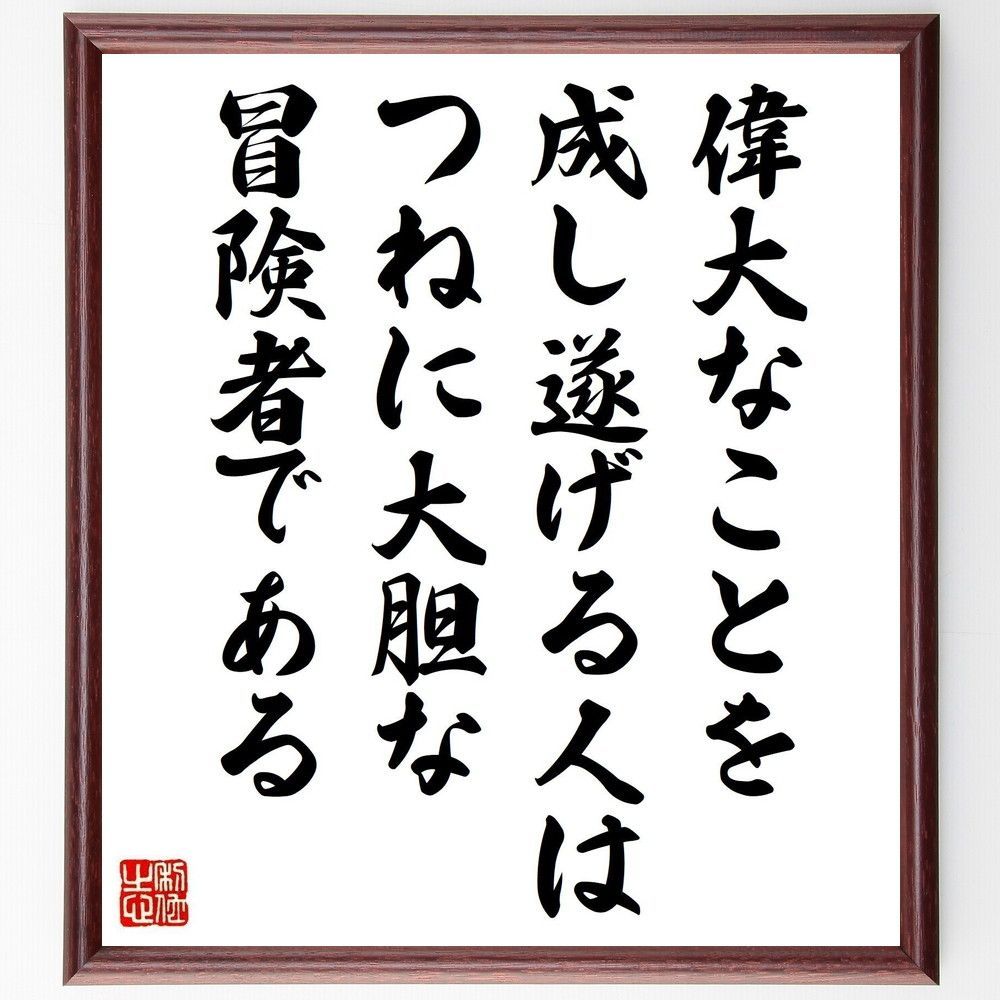 偉大なことを
成し遂げる人は
つねに大胆な
冒険者である